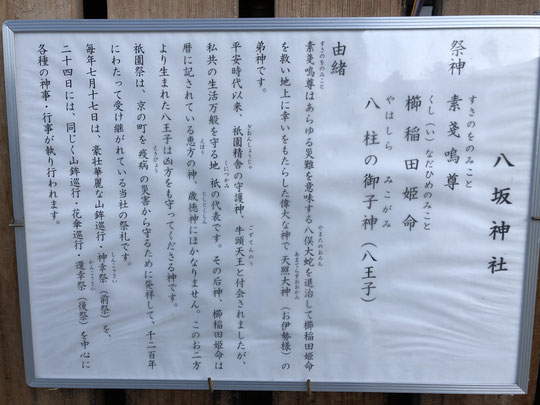 八坂神社
祭神 素戔嗚尊
すさのをのみこと
櫛稲田姫命
くし（い）なだひめのみこと
八柱の御子神（八王子）
やはしら みこがみ
由緒
素戔嗚尊はあらゆる災難を意味する八俣大蛇を退治して櫛稲田姫命
すさのをのみこと やまたのおろち
を救い地上に幸いをもたらした偉大な神で 天照大神（お伊勢様）の
あまてらすおおかみ
弟神です。
平安時代以来、祇園精舎の守護神、牛頭天王と付会されましたが、
ぎおんしょうじゃ ごずてんのう
私共の生活万般を守る地祇の代表です。その后神、櫛稲田姫命は
くにつかみ
暦に記されている恵方の神、歳徳神にほかなりません。このお二方
えほう としとくじん
より生まれた八王子は凶方をも守ってくださる神です。
祇園祭は、京の町を 疫病 の災害から守るために発祥して、千二百年
にわたって受け継がれている当社の祭礼です。
毎年七月十七日は、豪壮華麗な山鉾巡行・神幸祭（前祭）を、
しんこうさい
二十四日には、同じく山鉾巡行・花傘巡行・還幸祭（後祭）を中心に
かんこうさい
各種の神事・行事が執り行われます。